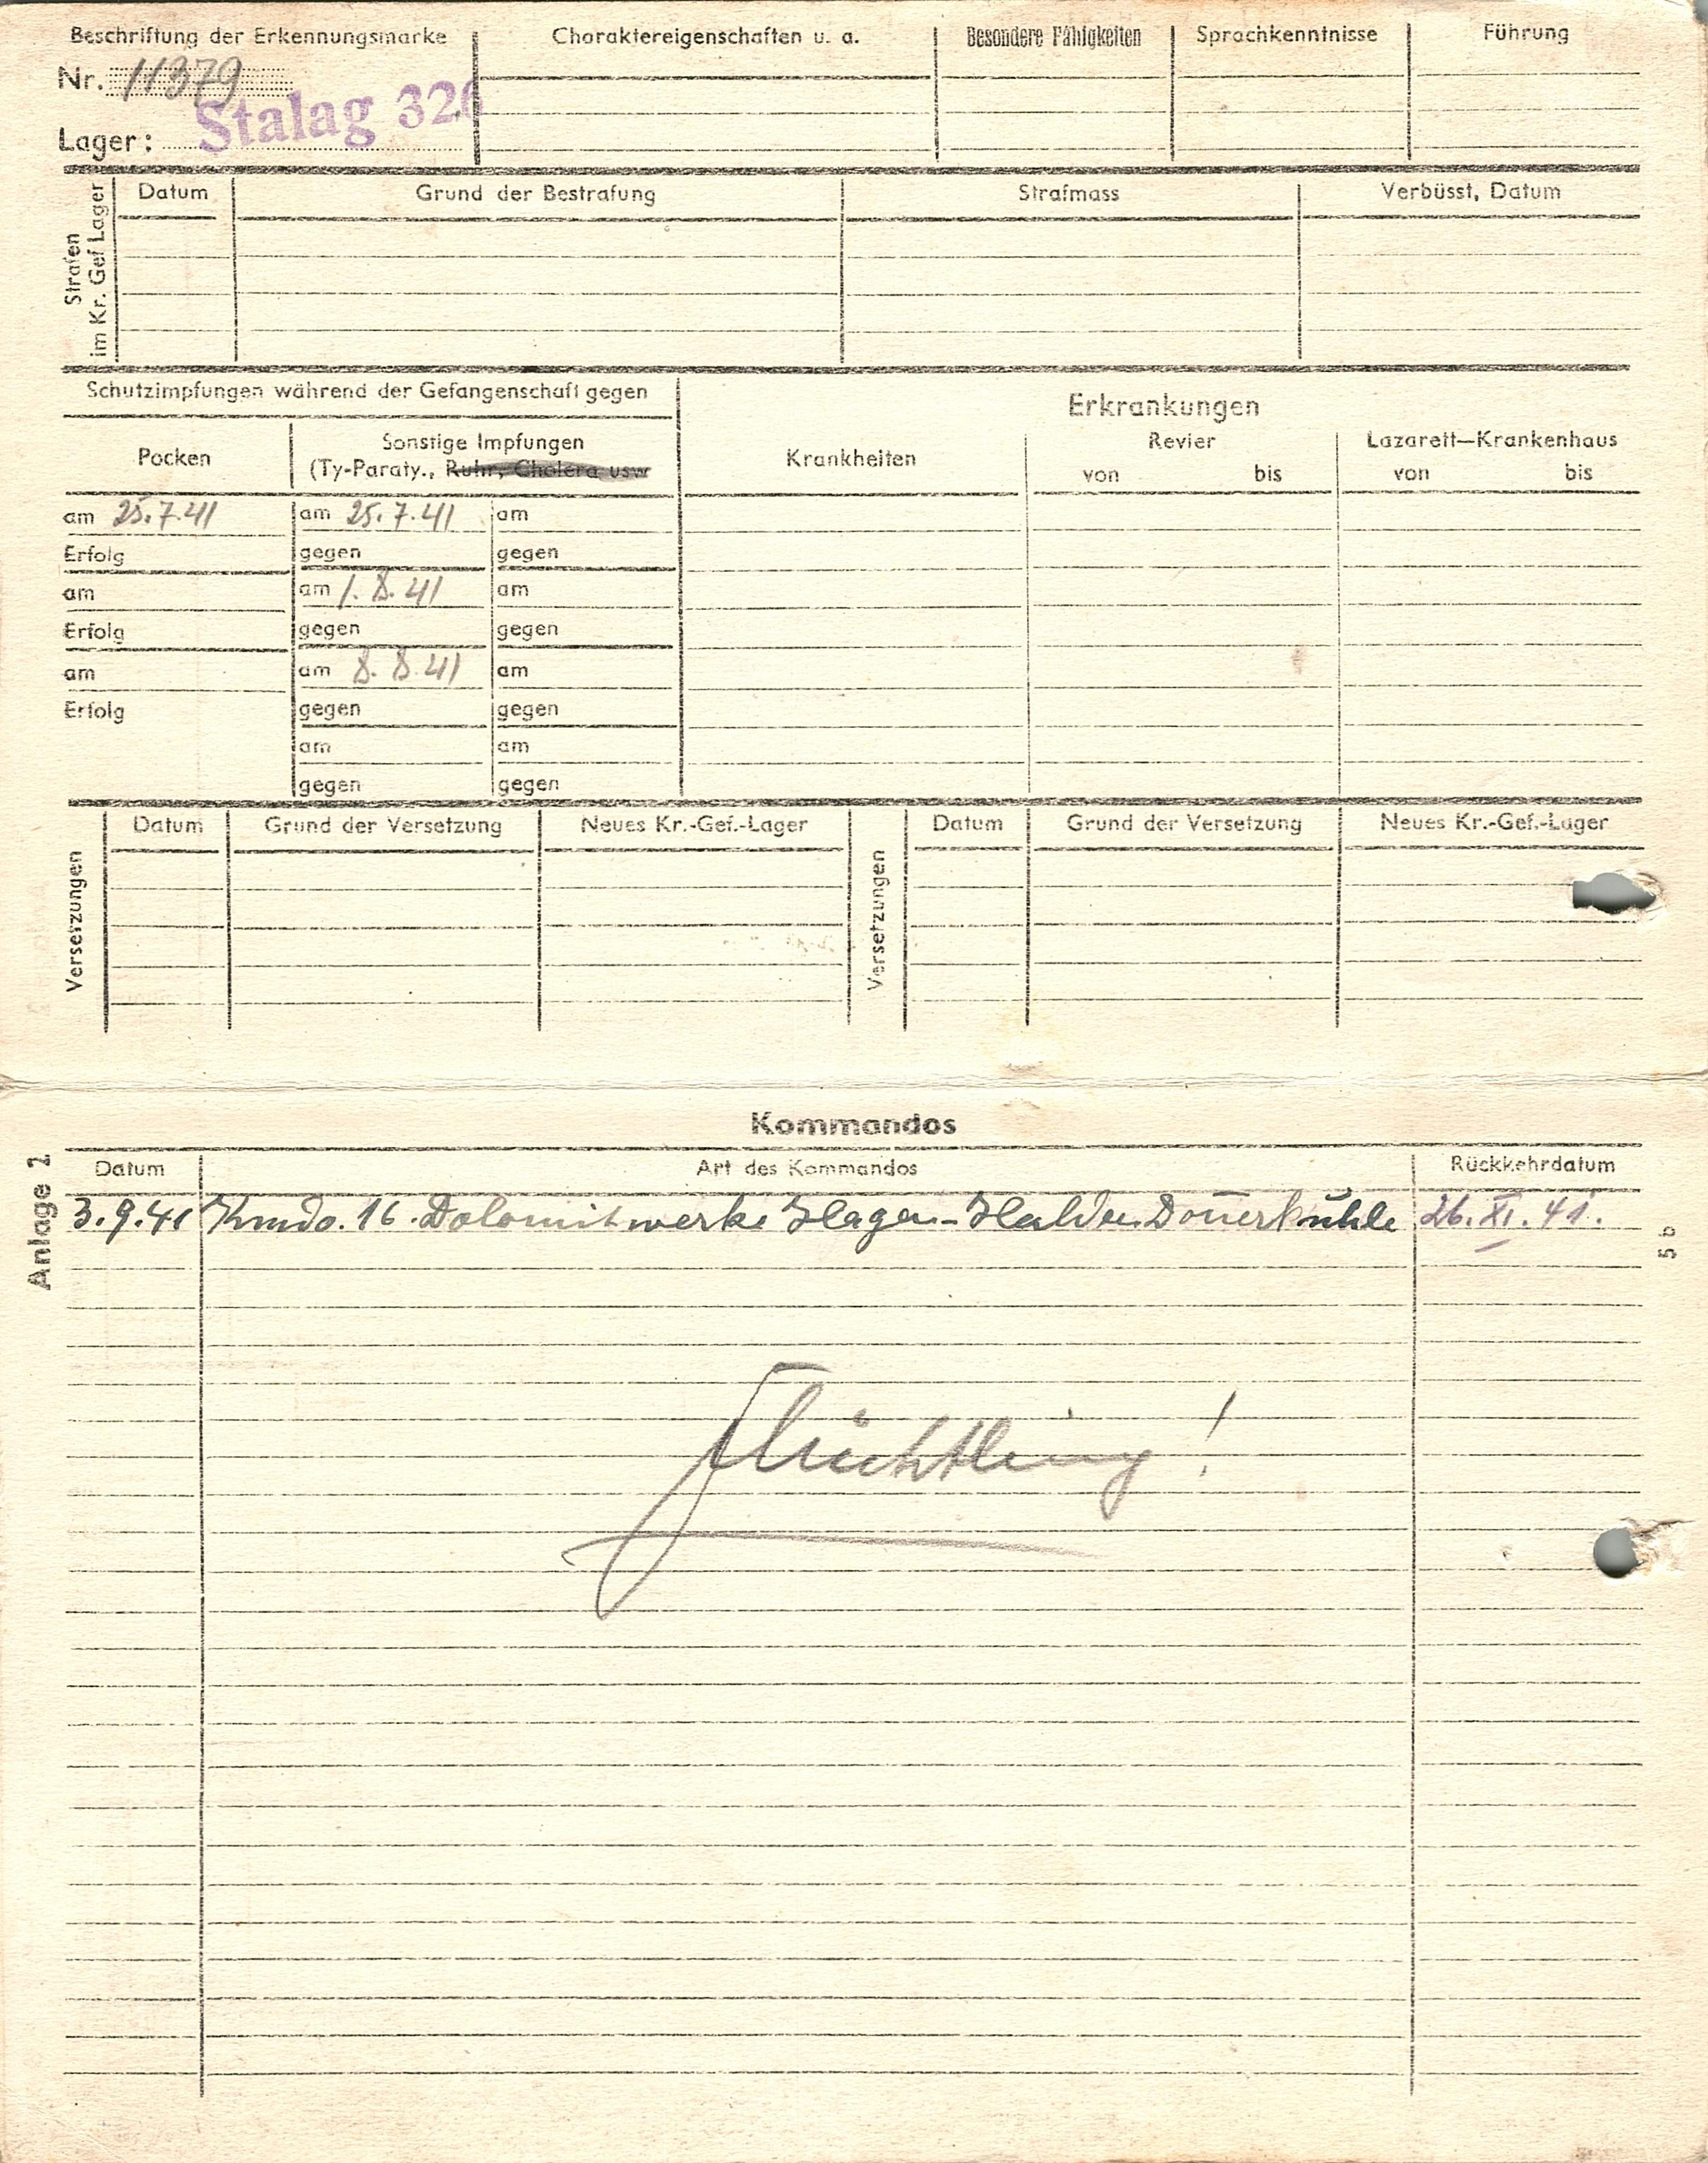 Beschriftung der Erkennungsmarke
Nr. 11379
Lager: Stalag 326
Charaktereigenschaften u. a.
Besondere Fähigkeiten
Sprachkenntnisse
Führung
Strafen
im Kr. Gef Lager
Datum
Grund der Bestrafung
Strafmass
Verbüsst, Datum
Schutzimpfungen während der Gefangenschaft gegen
Pocken
Sonstige Impfungen
(Ty-Paraty., Ruhr, Cholera usw
Erkrankungen
Krankheiten
Revier
von bis
Lazarett—Krankenhaus
von bis
am 25.7.41 am 25.7.41 am
Erfolg gegen gegen
am am 1.8.41 am
Erfolg gegen gegen
am am 8.8.41 am
Erfolg gegen gegen
am am
gegen gegen
Versetzungen
Datum Grund der Versetzung Neues Kr.-Gef.-Lager
Versetzungen
Datum Grund der Versetzung Neues Kr.-Gef.-Lager
Kommandos
Anlage 2
Datum Art des Kommandos Rückkehrdatum
3.9.41 Kmdo. 16. Dolomitwerke Hagen-Halden Donnerkuhle 26. XI. 41.
5 b
Flüchtling!